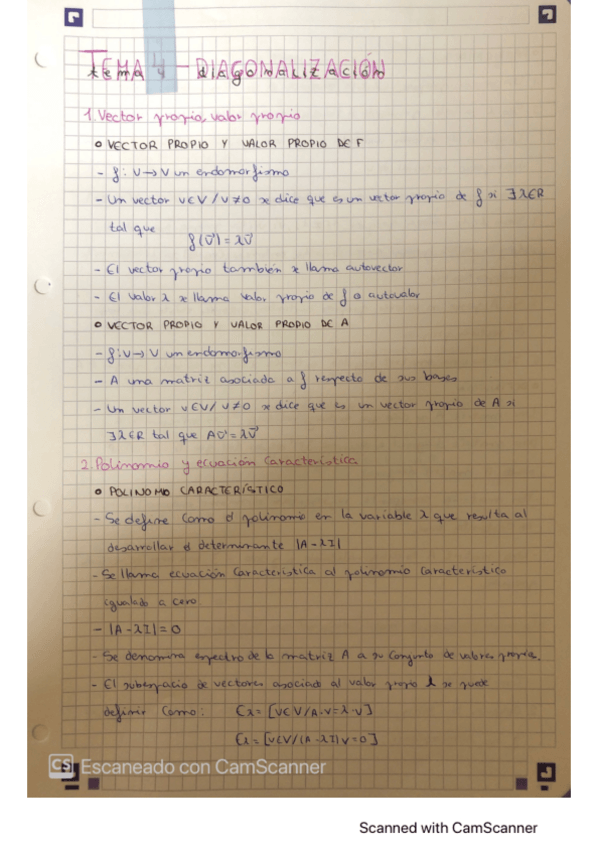 TEMA 4 - DIAGONALIZACIÓN
1. Vector propio, valor propio
o VECTOR PROPIO Y VALOR PROPIO DE F
- f: V→V un endomorfismo
- Un vector v∈V / v≠0 se dice que es un vector propio de f si ∃ λ∈R
tal que
f(v⃗) = λv⃗
- El vector propio también se llama autovector
- El valor λ se llama valor propio de f o autovalor
o VECTOR PROPIO Y VALOR PROPIO DE A
- f: V→V un endomorfismo
- A una matriz asociada a f respecto de sus bases
- Un vector v∈V / v≠0 se dice que es un vector propio de A si
∃λ∈R tal que Av⃗=λv⃗
2. Polinomio y ecuación característica
o POLINOMIO CARACTERÍSTICO
- Se define como el polinomio en la variable λ que resulta al
desarrollar el determinante |A-λI|
- Se llama ecuación característica al polinomio característico
igualado a cero
- |A-λI| = 0
- Se denomina espectro de la matriz A a su conjunto de valores propios.
- El subespacio de vectores asociado al valor propio λ se puede
definir como: Eλ = [v∈V/A·v=λ·v]
Eλ = [v∈V/(A-λI)v=0]
CS Escaneado con CamScanner
Scanned with CamScanner